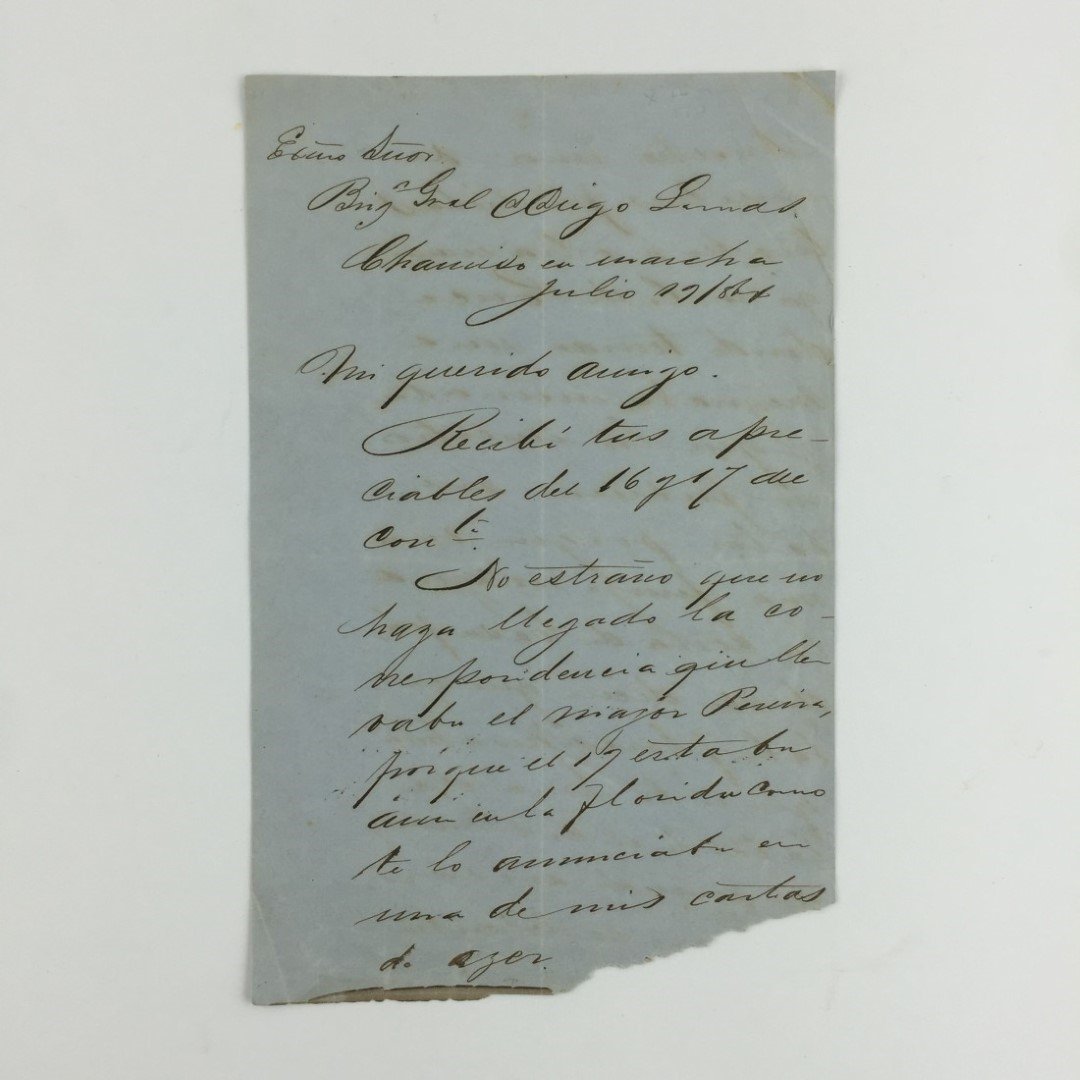 Exmo Señor
Brigr Gral D Diego Lamas.
en marcha
Julio 19/864
Mi querido amigo.
Recibí tus apre-
ciables del 16 y 17 del
corrte.
No estraño que no
haya llegado la co-
rrespondencia que lle
vaba el mayor Pereira,
porque el 17 estaba
aún en la Florida como
te lo anunciaba en
una de mis cartas
de ayer.